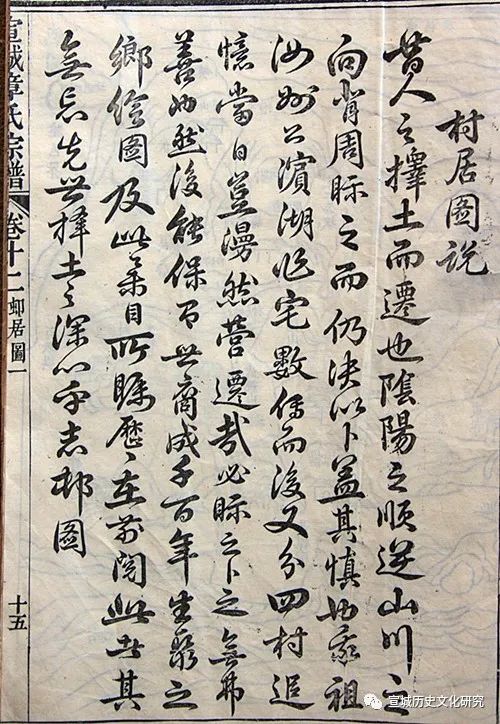 村居圖說
昔人之擇土而遷也陰陽之順逆山川之
向背周眎之而仍决以卜蓋其慎也我祖
汝州公濱湖作宅數傳而後又分四村追
憶當日豈漫然營遷哉必眎之卜之無弗
善也然後能保百世裔成千百年生聚之
鄉繪圖及此舉目所矚歷〻在前閱此者其
無忘先世擇土之深心乎志邨圖
宣城章氏宗譜 卷十二 邨居圖一 十五
宣城历史文化研究